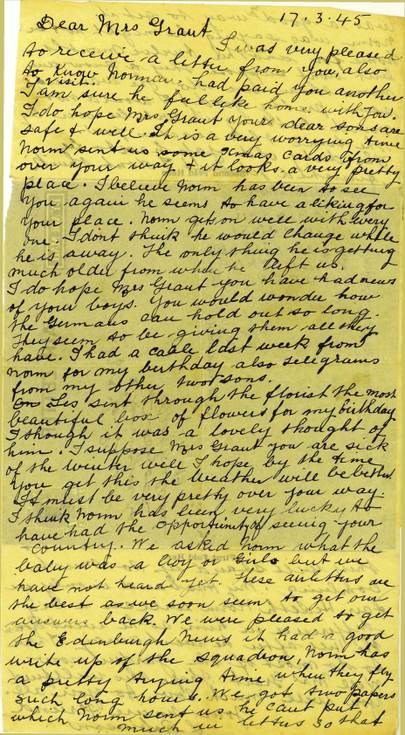 17.3.45
Dear Mrs Grant
I was very pleased
to receive a letter from you, also
to know Norman had paid you another
visit.
I am sure he full like home with you.
I do hope Mrs Grant your dear sons are
safe & well. It is a very worrying time
Norm sent us some Xmas cards from
over your way & it looks a very pretty
place. I believe Norm has been to see
you again he seems to have a liking for
your place. Norm gets on well with every
one. I dont think he would change while
he is away. The only thing he is getting
much older from when he left us.
I do hope Mrs Grant you have had news
of your boys. You would wonder how
the Germans can hold out so long.
They seem to be giving them all they
have. I had a cable last week from
Norm for my birthday also telegrams
from my other two sons.
Les sent through the florist the most
beautiful box of flowers for my birthday
I though it was a lovely thought of
him. I suppose Mrs Grant you are sick
of the winter well I hope by the time
you get this the weather will be better
It must be very pretty over your way.
I think Norm has been very lucky to
have had the opportunity of seeing your
country. We asked Norm what the
baby was a boy or Girls but we
have not heard yet. These airletters are
the best as we soon seem to get our
answers back. We were pleased to get
the Edinburgh News it had a good
write up of the squadron, Norm has
a pretty trying time when they fly
such long hours. We got two papers
which Norm sent us he cant put
much in letters so that